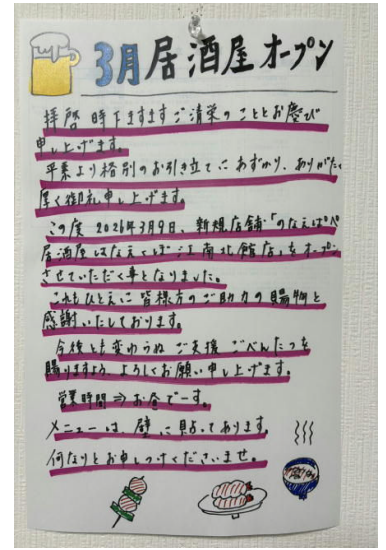 3月居酒屋オープン
拝啓 時下ますますご清栄のこととお慶び
申し上げます。
平素より格別のお引き立てにあずかり、ありがたく
厚く御礼申し上げます。
この度 2026年3月9日、新規店舗「のなえぱぺ
居酒屋はなえくぼ江南北館店」をオープン
させていただく事となりました。
これもひとえに皆様方のご助力の賜物と
感謝いたしております。
今後とも変わらぬご支援ごべんたつを
賜りますよう、よろしくお願い申し上げます。
営業時間⇒お昼でーす。
メニューは壁に貼ってあります。
何なりとお申しつけくださいませ。